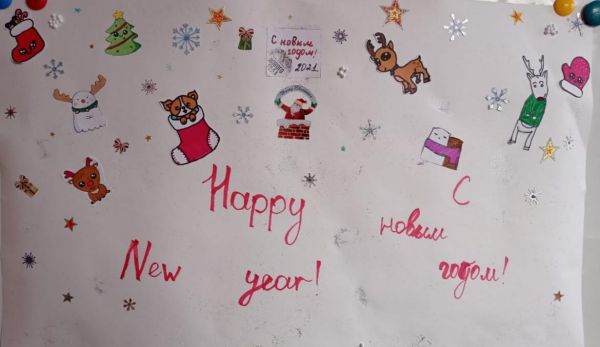 С новым
годом!
2021
Happy
New year!
С
новым
годом!